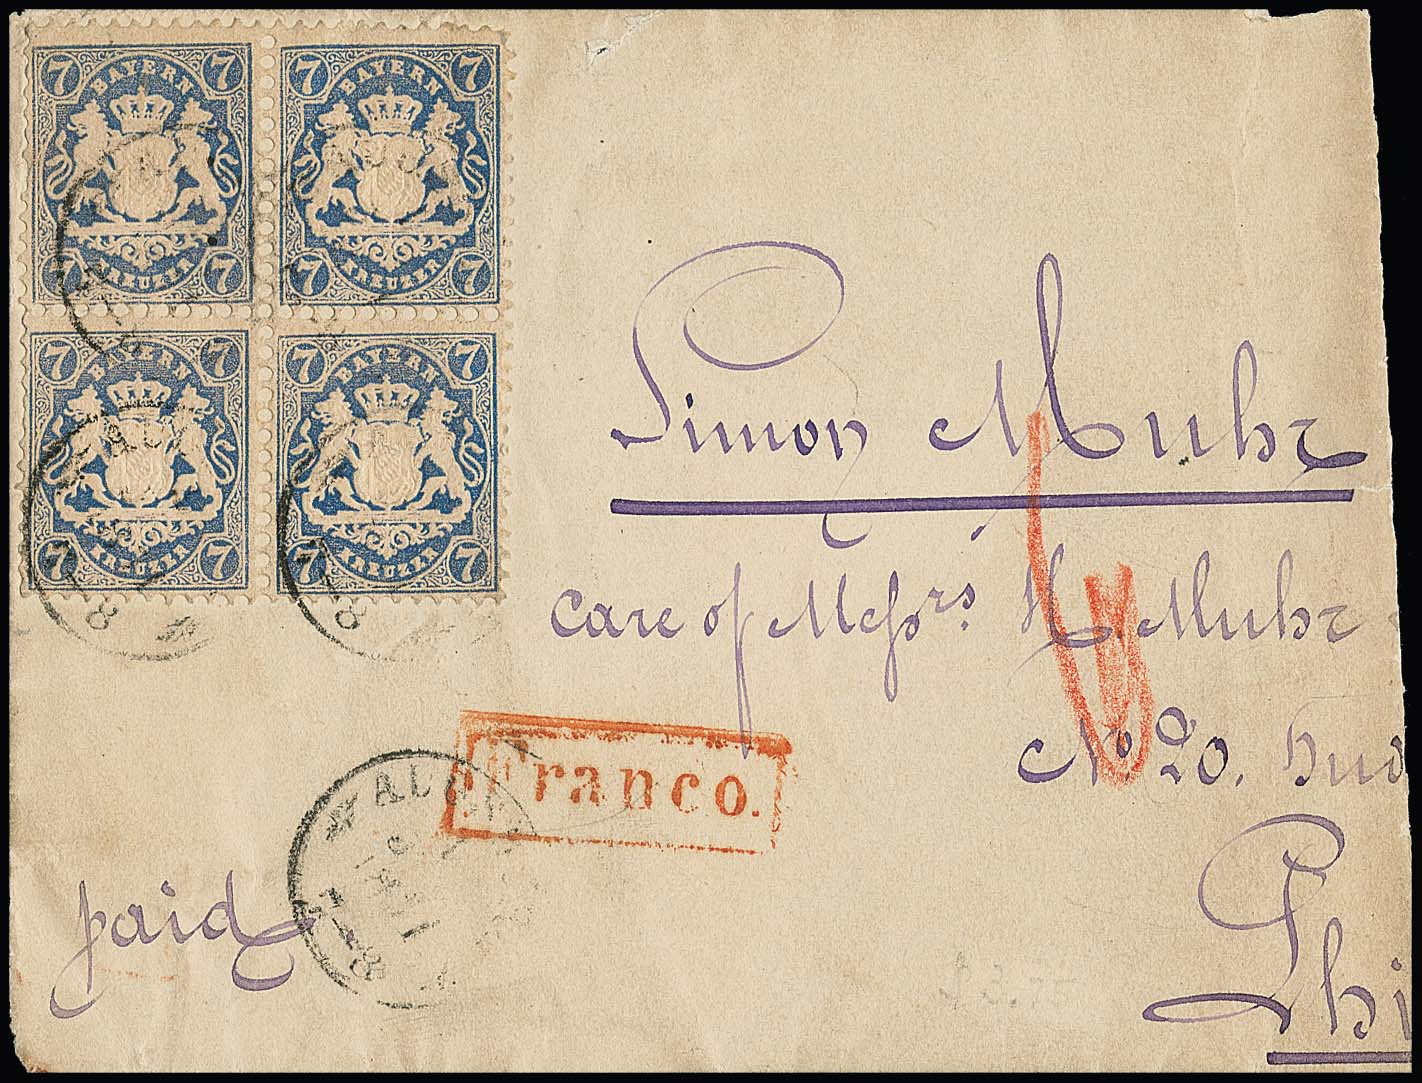 7 BAYERN 7
7 KREUZER 7
7 BAYERN 7
7 KREUZER 7
7 BAYERN 7
7 KREUZER 7
7 BAYERN 7
7 KREUZER 7
Simon Muhr
care of Messrs. H. Muhr
No. 20.
Franco.
paid
Phi